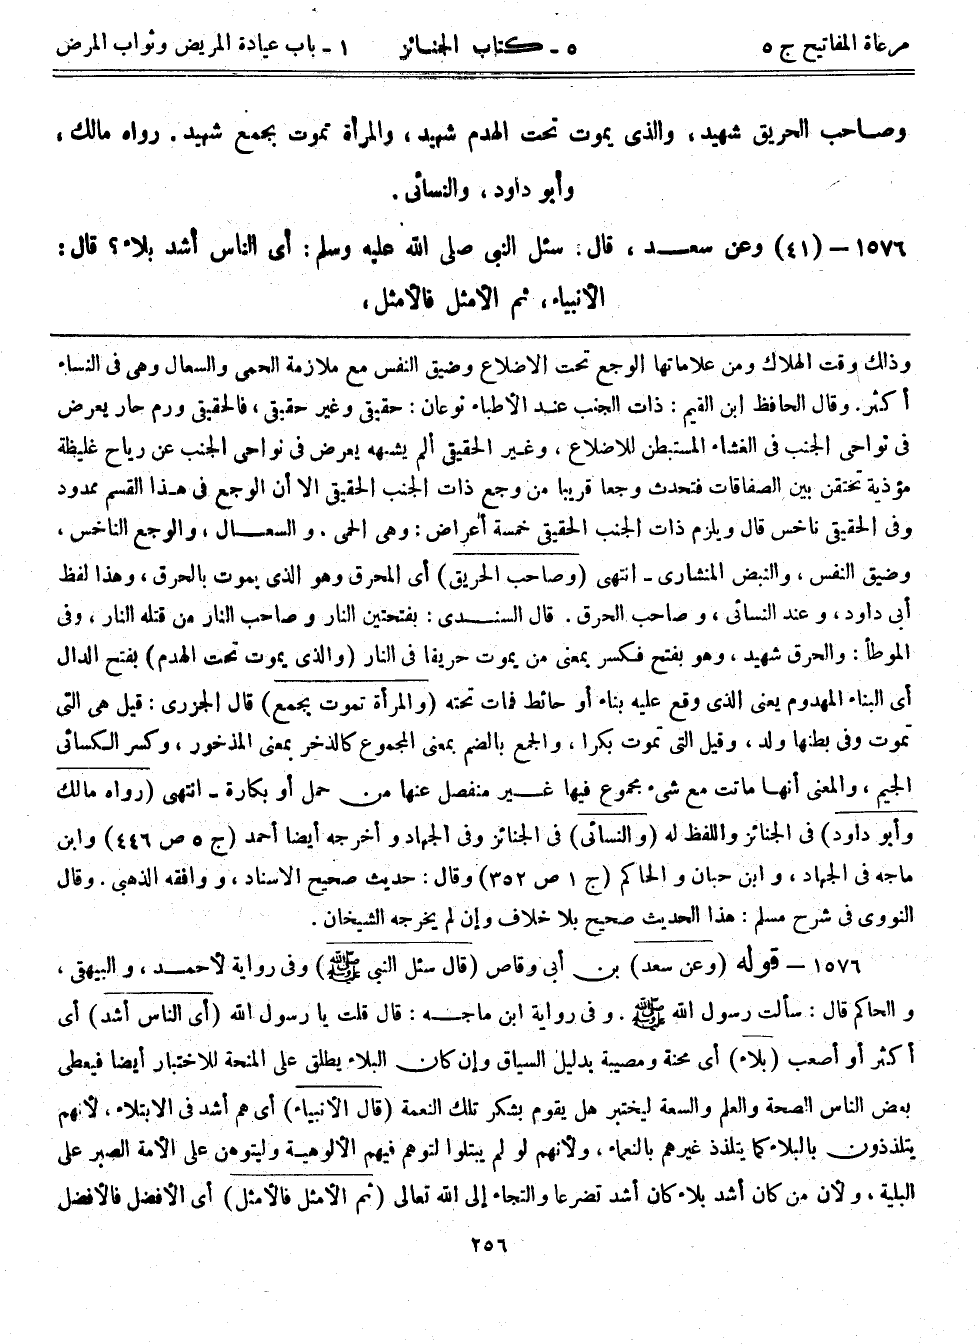 مرعاة المفاتيح ج ٥
٥ - كتاب الجنائز
١ - باب عيادة المريض وثواب المرض
وصاحب الحريق شهيد، والذى يموت تحت الهدم شهيد، والمرأة تموت بجمع شهيد. رواه مالك،
وأبو داود، والنسائى.
١٥٧٦ - (٤١) وعن سعد، قال: سئل النبى صلى الله عليه وسلم: أى الناس أشد بلاء؟ قال:
الأنبياء، ثم الأمثل فالأمثل،
وذلك وقت الهلاك ومن علاماتها الوجع تحت الاضلاع وضيق النفس مع ملازمة الحمى والسعال وهى فى النساء
أكثر. وقال الحافظ ابن القيم: ذات الجنب عند الأطباء نوعان: حقيقى وغير حقيقى، فالحقيقى ورم حار يعرض
فى نواحى الجنب فى الغشاء المستبطن للاضلاع، وغير الحقيقى ألم يشبهه يعرض فى نواحى الجنب عن رياح غليظة
مؤذية تحتقن بين الصفاقات فتحدث وجعا قريبا من وجع ذات الجنب الحقيقى الا أن الوجع فى هذا القسم ممدود
وفى الحقيقى ناخس قال ويلزم ذات الجنب الحقيقى خمسة أعراض: وهى الحمى. و السعال، والوجع الناخس،
وضيق النفس، والنبض المنشارى - انتهى (وصاحب الحريق) أى المحرق وهو الذى يموت بالحرق، وهذا لفظ
أبى داود، و عند النسائى، و صاحب الحرق. قال السندى: بفتحتين النار و صاحب النار من قتله النار، وفى
الموطأ: والحرق شهيد، وهو بفتح فكسر بمعنى من يموت حريقا فى النار (والذى يموت تحت الهدم) بفتح الدال
أى البناء المهدوم يعنى الذى وقع عليه بناء أو حائط فمات تحته (والمرأة تموت بجمع) قال الجزرى: قيل هى التى
تموت وفى بطنها ولد، وقيل التى تموت بكرا، والجمع بالضم بمعنى المجموع كالذخر بمعنى المذخور، وكسر الكسائى
الجيم، والمعنى أنها ماتت مع شىء مجموع فيها غير منفصل عنها من حمل أو بكارة - انتهى (رواه مالك
وأبو داود) فى الجنائز واللفظ له (والنسائى) فى الجنائز وفى الجهاد و أخرجه أيضا أحمد (ج ٥ ص ٤٤٦) وابن
ماجه فى الجهاد، و ابن حبان و الحاكم (ج ١ ص ٣٥٢) وقال: حديث صحيح الاسناد، و وافقه الذهبى. وقال
النووى فى شرح مسلم: هذا الحديث صحيح بلا خلاف وإن لم يخرجه الشيخان.
١٥٧٦ - قوله (وعن سعد) بن أبى وقاص (قال سئل النبى ﷺ) وفى رواية لأحمد، و البيهقى،
و الحاكم قال: سألت رسول الله ﷺ. و فى رواية ابن ماجه: قال قلت يا رسول الله (أى الناس أشد) أى
أكثر أو أصعب (بلاء) أى محنة ومصيبة بدليل السياق وإن كان البلاء يطلق على المنحة للاختبار أيضا فيعطى
بعض الناس الصحة والعلم والسعة ليختبر هل يقوم بشكر تلك النعمة (قال الأنبياء) أى هم أشد فى الابتلاء، لأنهم
يتلذذون بالبلاء كما يتلذذ غيرهم بالنعماء، ولأنهم لو لم يبتلوا لتوهم فيهم الألوهية وليتوهن على الأمة الصبر على
البلية، و لأن من كان أشد بلاء كان أشد تضرعا والتجاء إلى الله تعالى (ثم الأمثل فالأمثل) أى الأفضل فالأفضل
٢٥٦